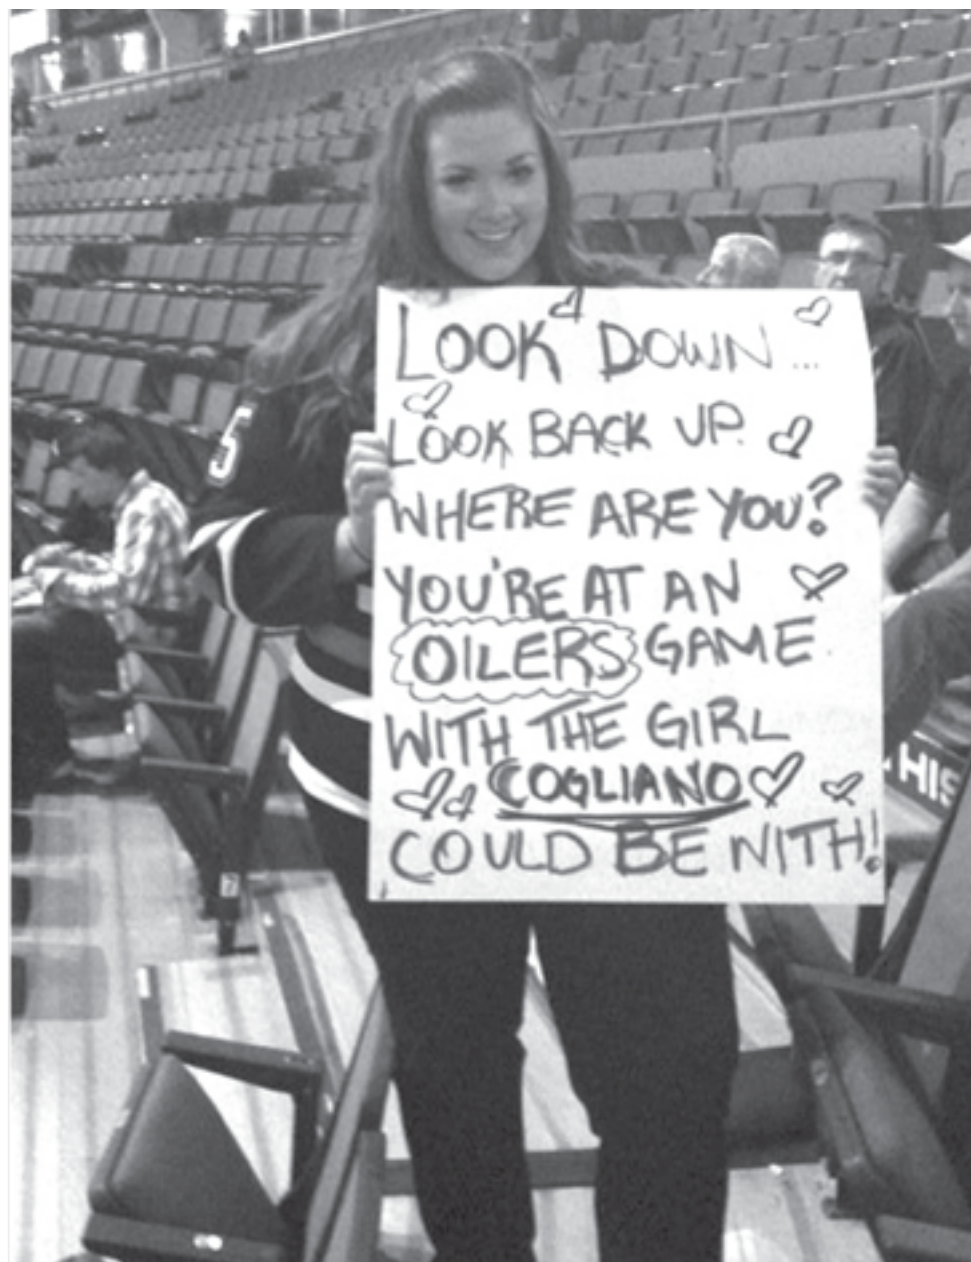 LOOK DOWN...
LOOK BACK UP.
WHERE ARE YOU?
YOU'RE AT AN
OILERS GAME
WITH THE GIRL
COGLIANO
COULD BE WITH!
HIS
5